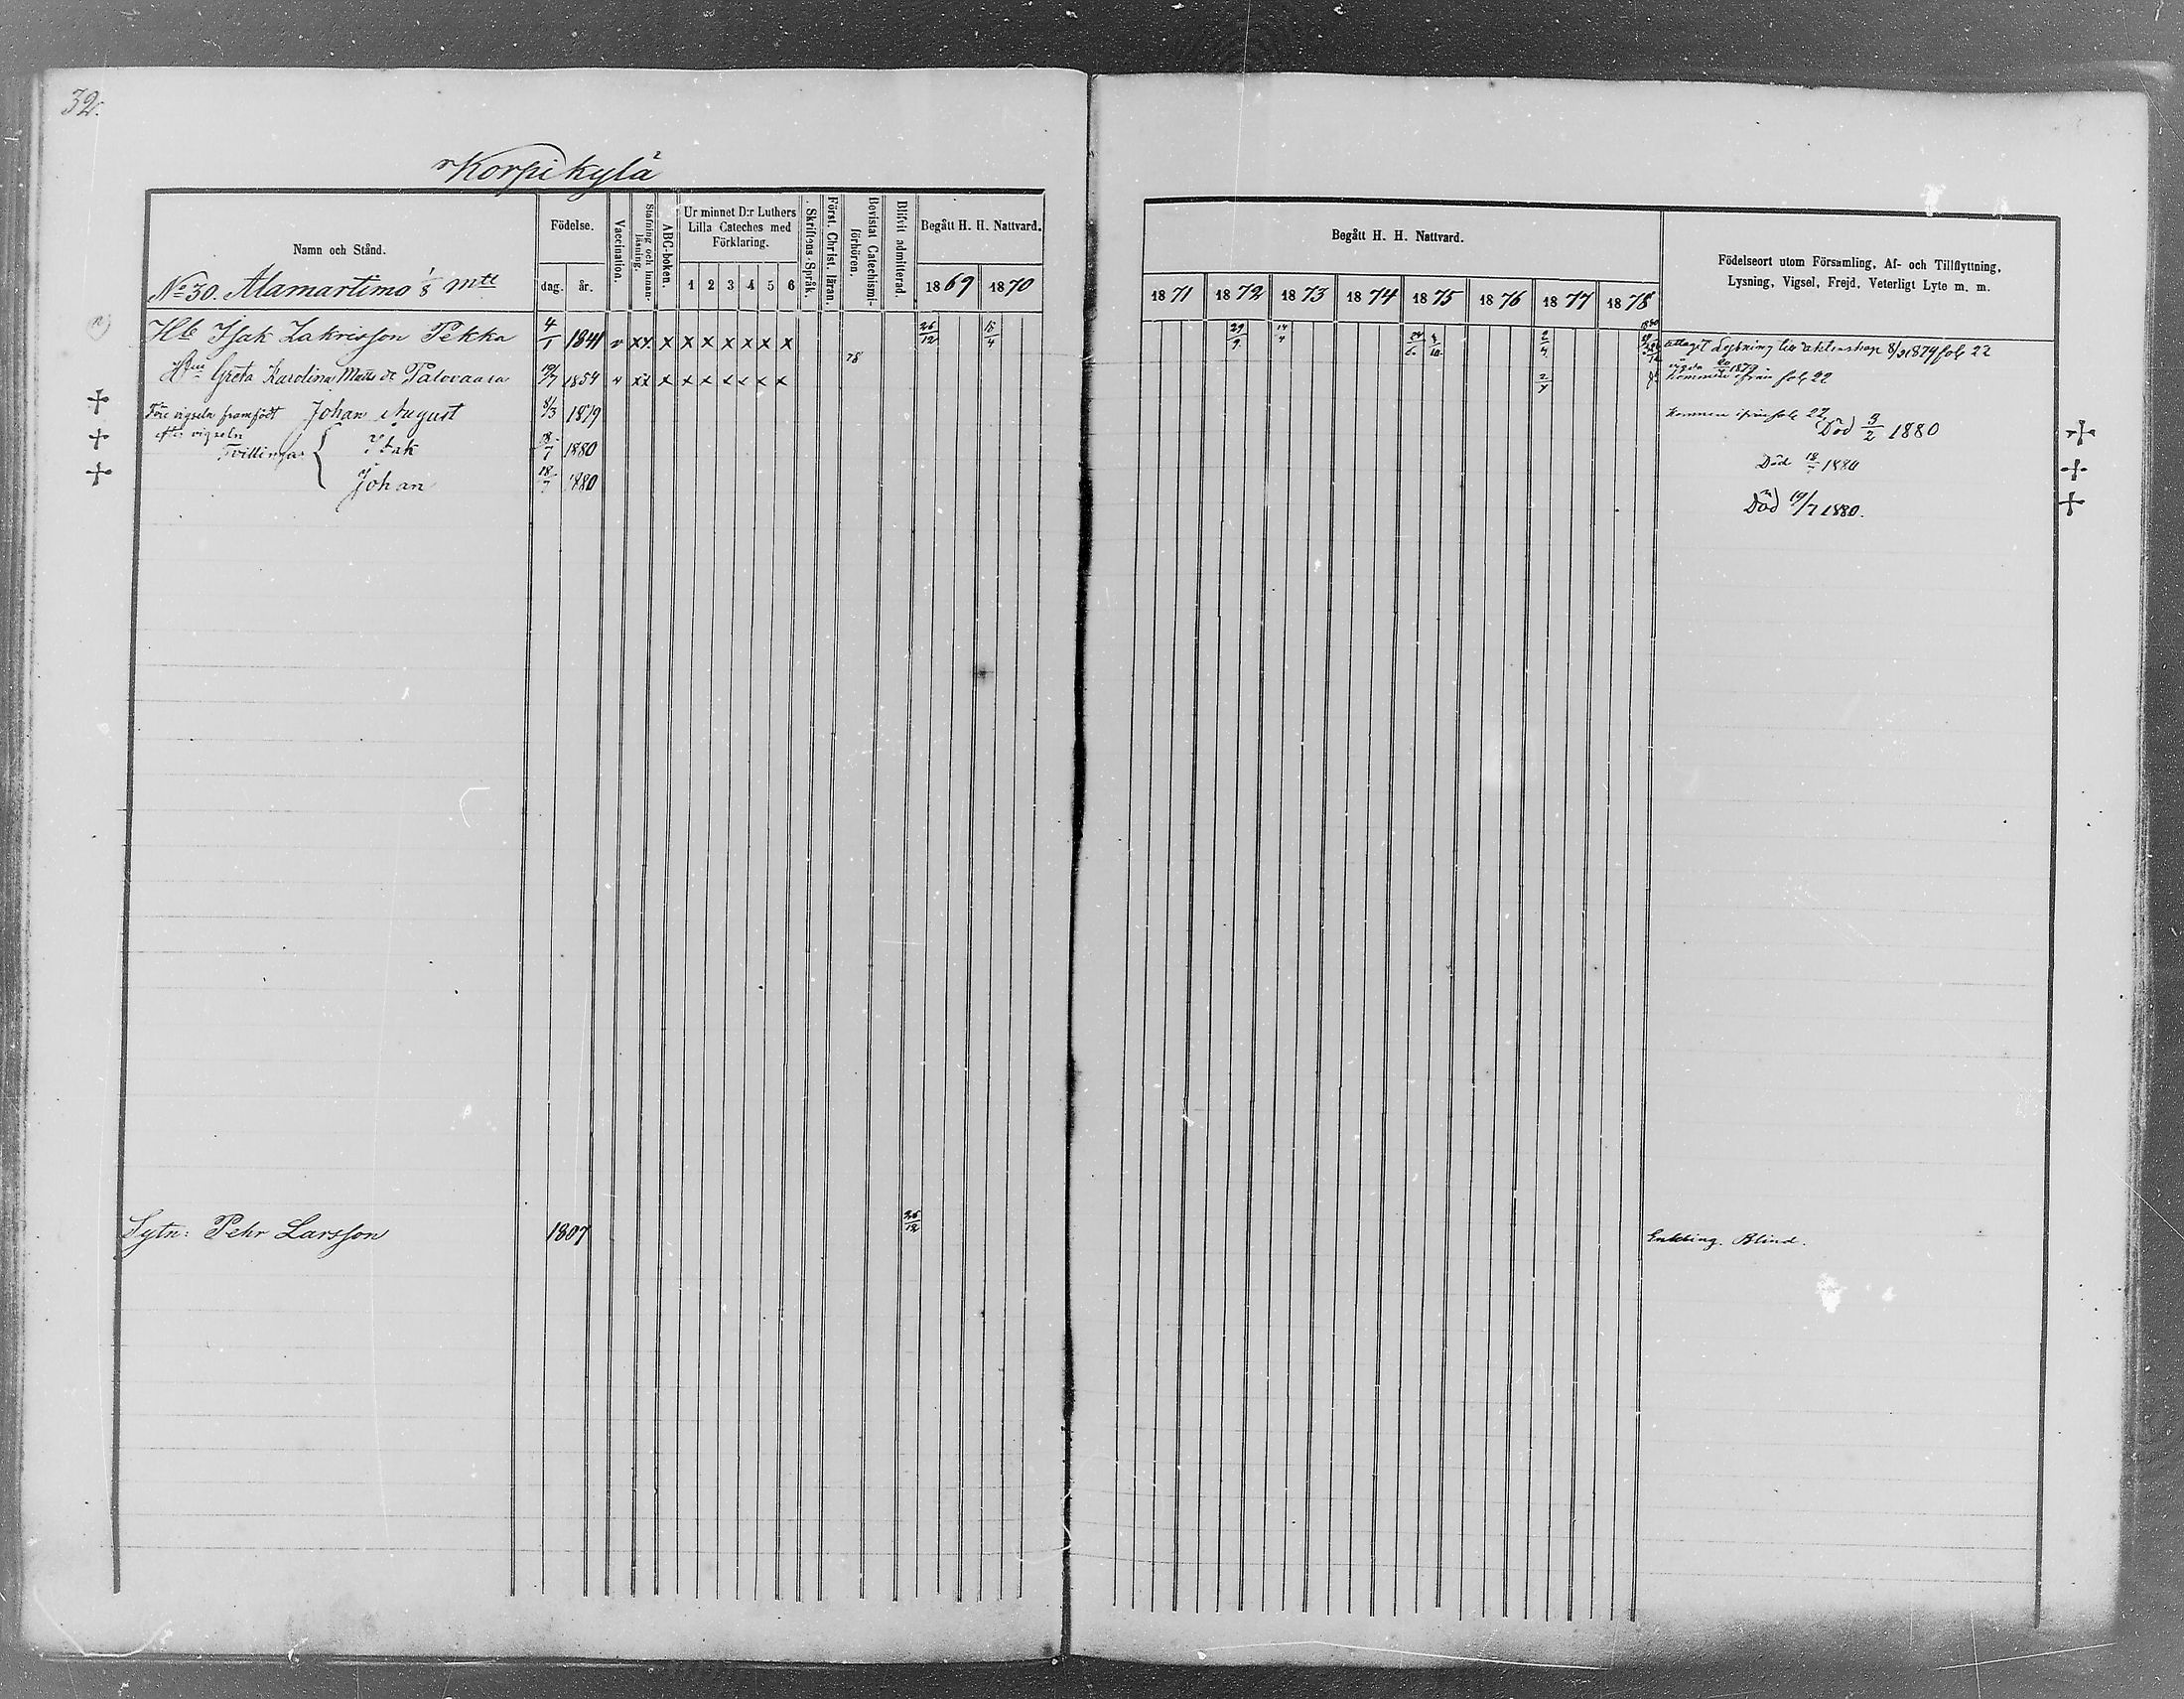 32.
Korpikylä
Namn och Stånd.
Födelse.
dag. år.
Vaccination.
Stafning och innan-läsning.
ABC-boken.
Ur minnet D:r Luthers Lilla Cateches med Förklaring.
1 2 3 4 5 6
Skriftens Språk.
Först. Christ. läran.
Bevistat Catechismi-förhören.
Blifvit admitterad.
Begått H. H. Nattvard.
1869 1870
Begått H. H. Nattvard.
1871 1872 1873 1874 1875 1876 1877 1878
Födelseort utom Församling, Af- och Tillflyttning,
Lysning, Vigsel, Frejd, Veterligt Lyte m. m.
No 30. Alamartimo 1/8 mtl
Hb Isak Zakrisson Pekka 4/1 1841 v xx x x x x x x x 26/12 15/4 29/9 14/4 2/4 1880 uttagit Lysning till äktenskap 8/9 1879 fol 22
Hun Greta Karolina Matts dr Palovaara 19/7 1854 v xx x x x x x x x 78 2/4 kommen ifrån fol 22
Före vigseln framfödt Johan August 8/3 1879 kommen ifrån fol 22 Död 3/2 1880
efter vigseln
Tvillingar { Isak 18/7 1880 Död 18/7 1880
Johan 18/7 1880 Död 19/7 1880.
Sytn: Pehr Larsson 1807 26/12 Enkling. Blind.